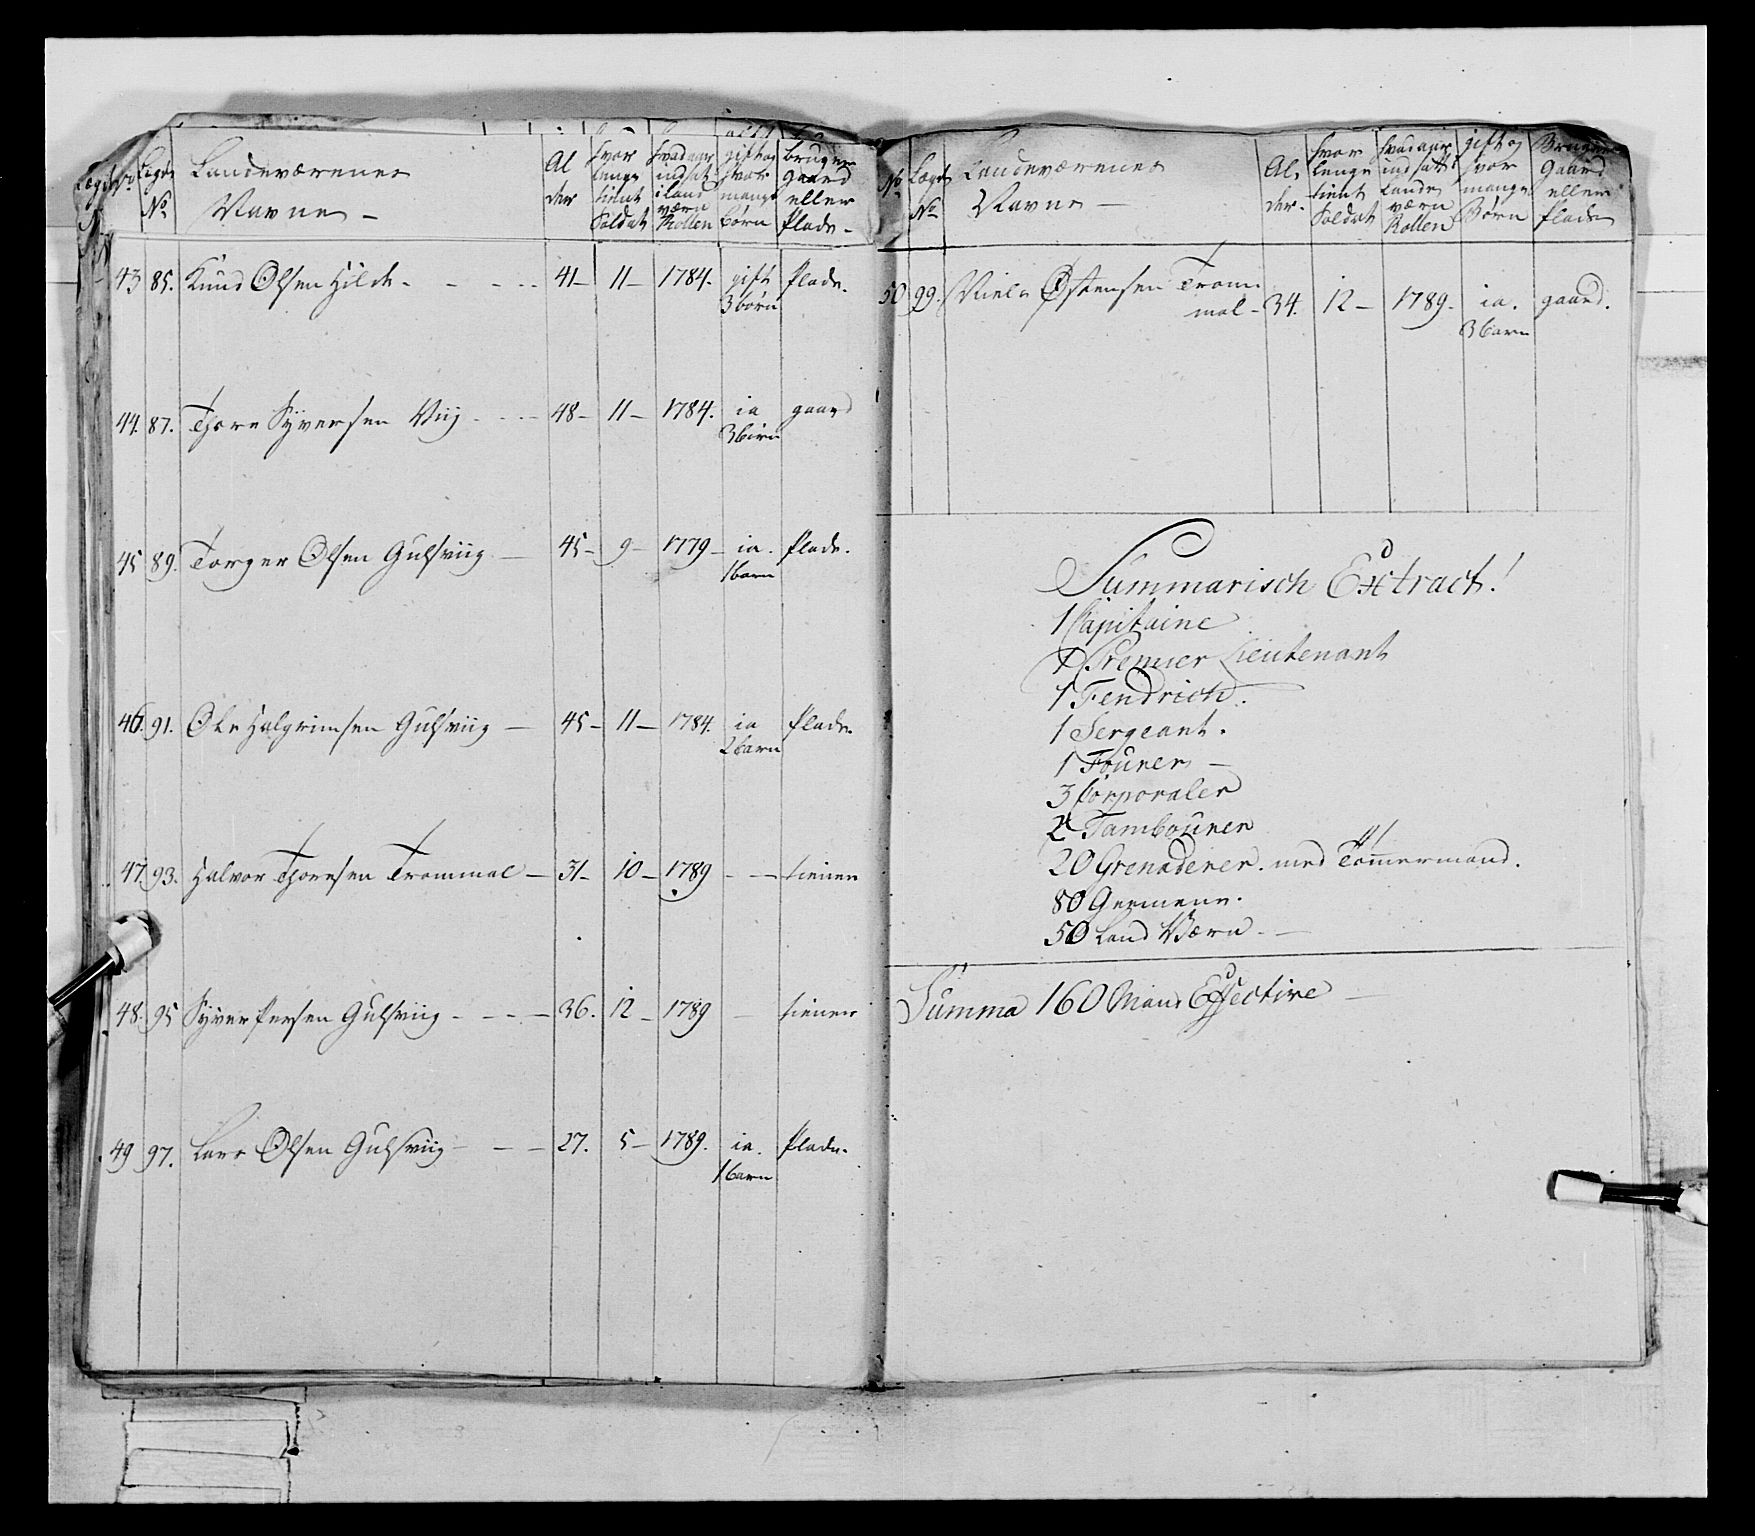 No Lægd No Landeværenes Navne - Al der hvor lenge tient Soldat hvad aar indsat i Land værn Rollen gift og hvor mange børn bruger gaard eller Plads -
43 85. Knud Olsen Hilde - - - - 41 - 11 - 1784. gift Plads.
3 børn
44. 87. Thore Syversen Viig - - - 48 - 11 - 1784. ia gaard
3 børn
45 89. Torger Olsen Gulsviig - 45 - 9 - 1779 - ia. Plads.
1 barn
46. 91. Ole Halgrimsen Gulsviig - 45 - 11 - 1784. ia Plads.
2 barn
47. 93. Halvor Thoresen Trommal - 31 - 10 - 1789 - - tiener
48. 95 Syver Persen Gulsviig - - - 36. 12 - 1789 - tiener
49 97. Lars Olsen Gulsviig - - - 27. 5 - 1789. ia. Plads.
1 barn
No Lægd No Landeværenes Navne - Al, der - hvor lenge tient Soldat hvad aar indsatt i Lande værn Rollen gift og hvor mange Børn Bruger Gaard eller Plads
50 99. Niels Østensen Trom-
mal - 34. 12 - 1789. ia. gaard.
3 barn
Summarisch Extract!
1 Capitaine
1 Premier Lieutenant
1 Fendrich.
1 Sergeant.
1 Fourer -
3 Corporaler
2 Tambourer
20 Grenaderer. med Tømmermand.
80 Gemene.
50 Land Værn. -
Summa 160 Mand Effective -